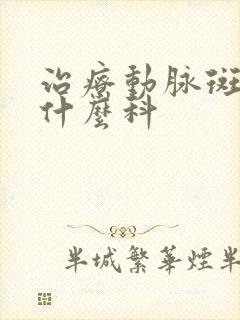 治療動脈斑
什麼科
半城繁華煙半